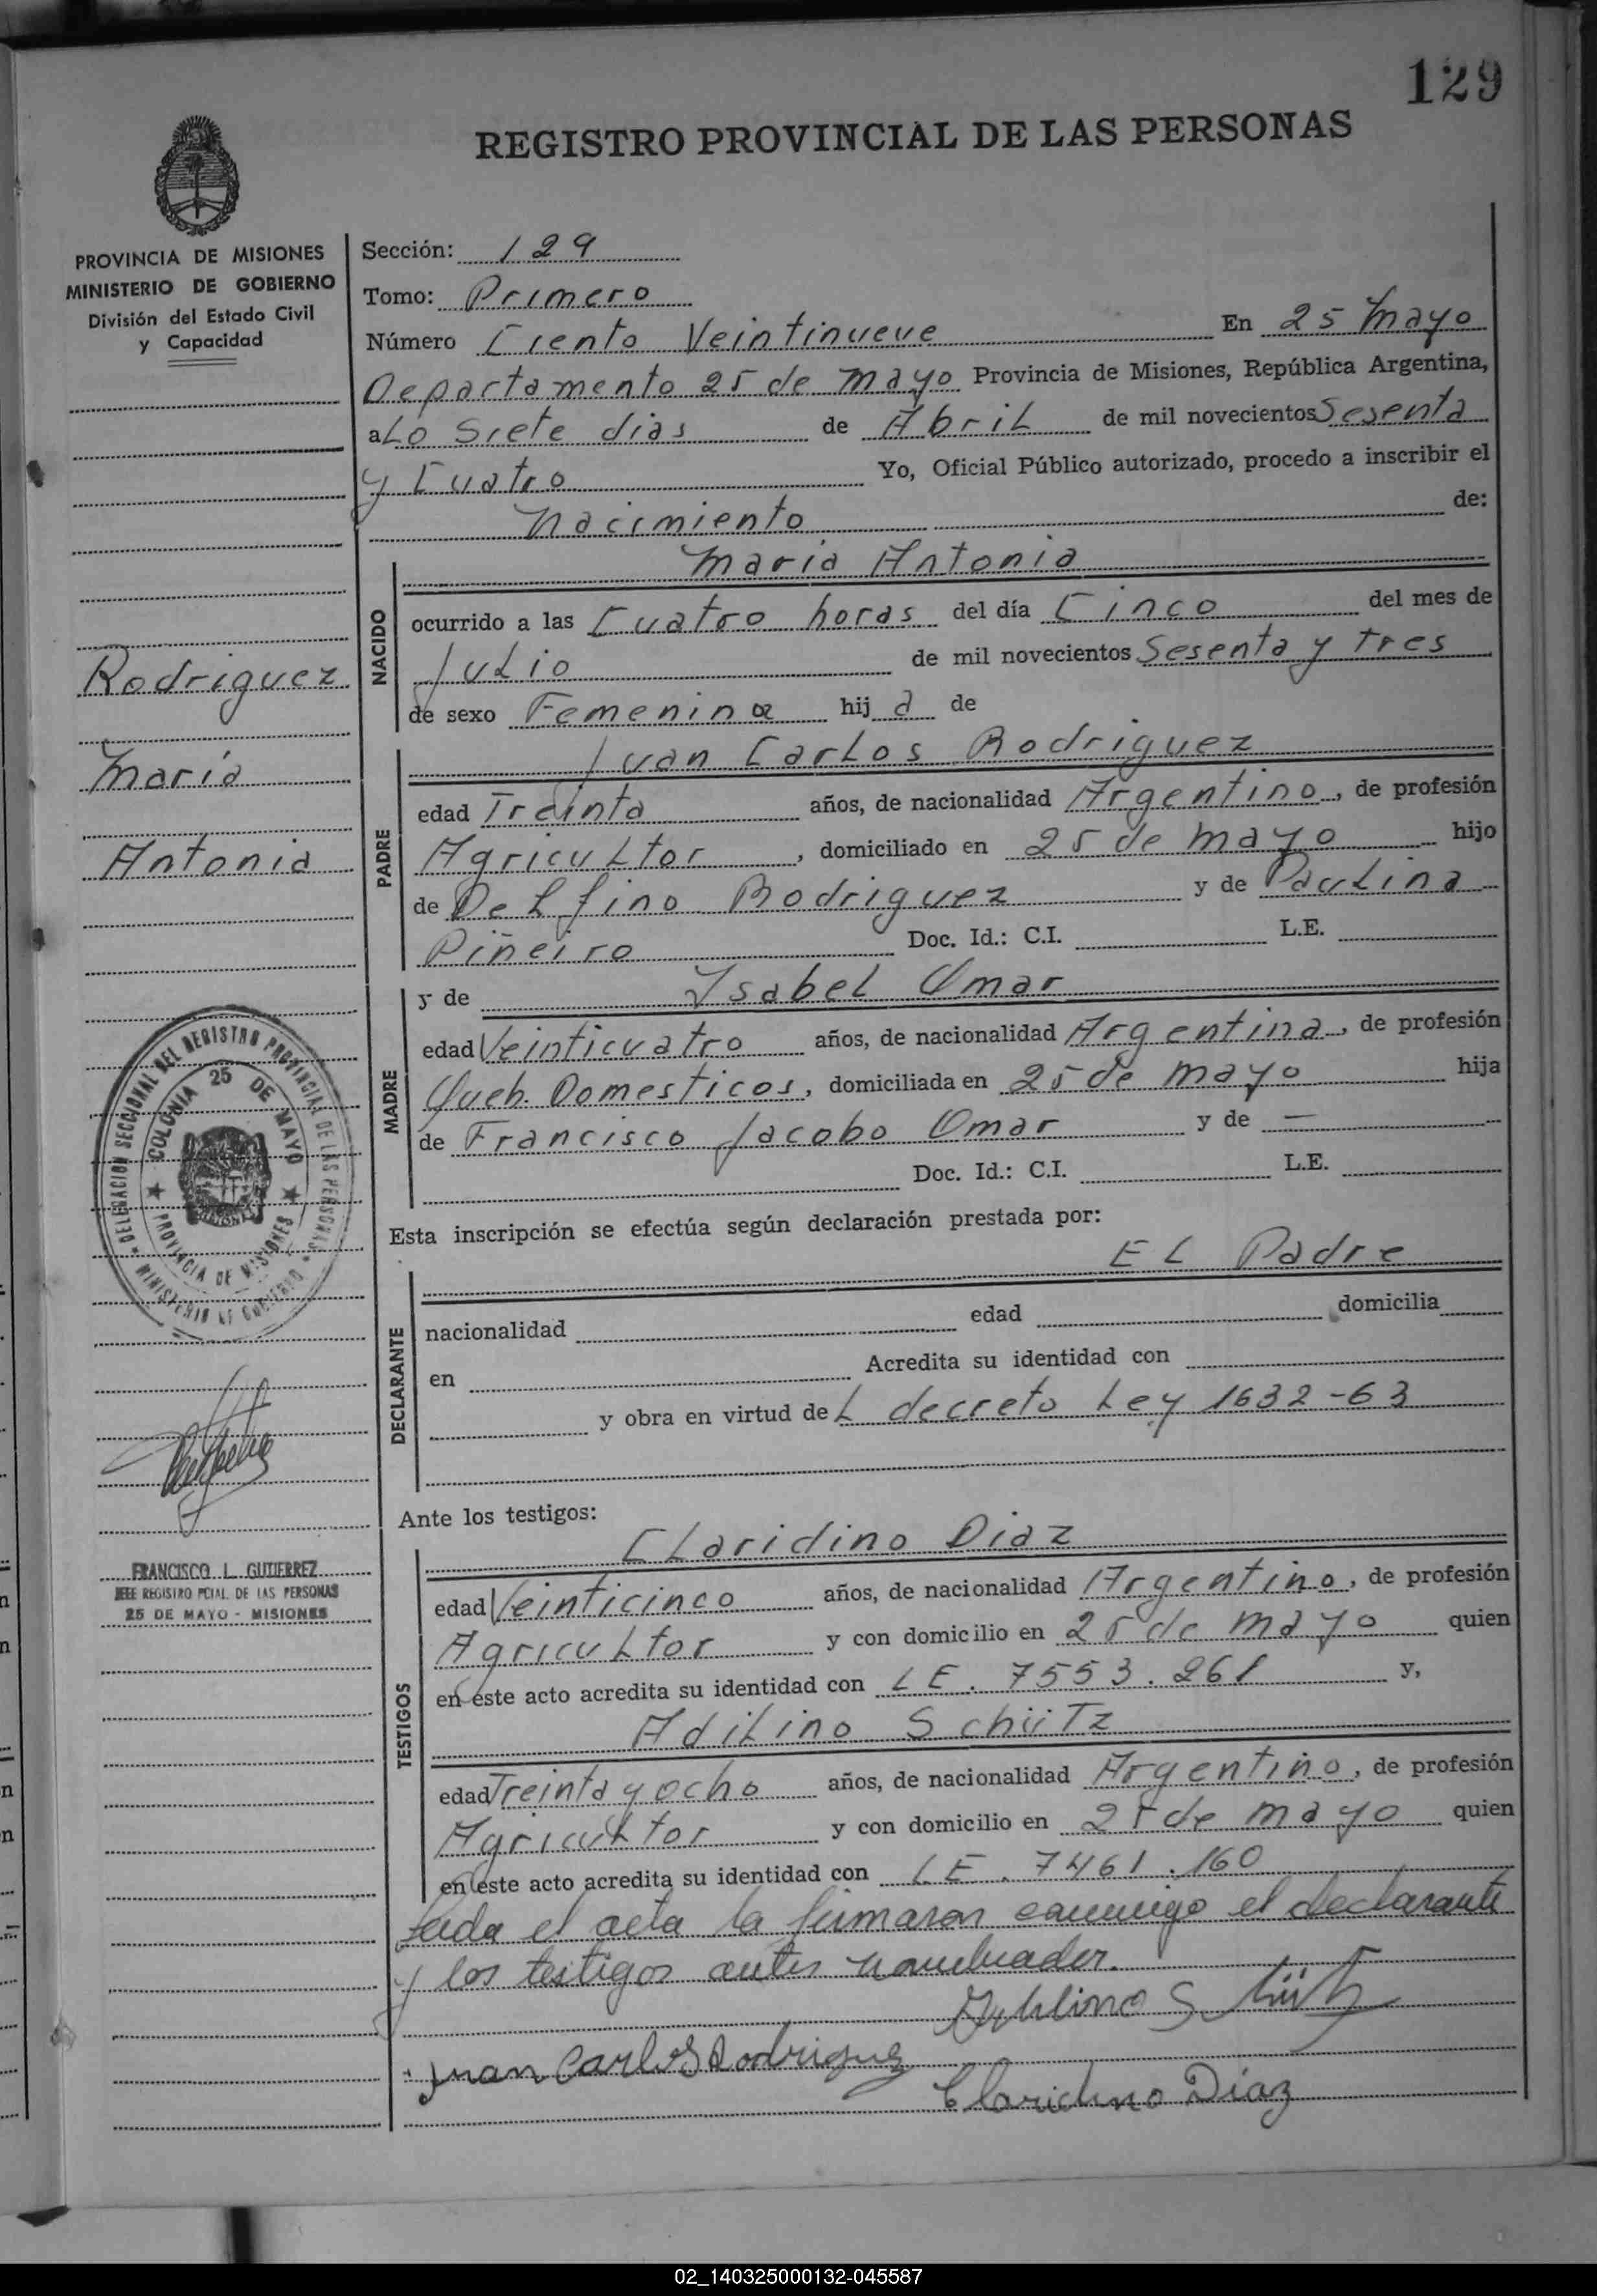 129
REGISTRO PROVINCIAL DE LAS PERSONAS
PROVINCIA DE MISIONES
MINISTERIO DE GOBIERNO
División del Estado Civil
y Capacidad
Rodriguez
Maria
Antonia
DELEGACION SECCIONAL DEL REGISTRO PROVINCIAL DE LAS PERSONAS
MINISTERIO DE GOBIERNO
COLONIA 25 DE MAYO
PROVINCIA DE MISIONES
FRANCISCO L. GUTIERREZ
JEFE REGISTRO PCIAL. DE LAS PERSONAS
25 DE MAYO - MISIONES
Sección: 129
Tomo: Primero
Número Ciento Veintinueve En 25 Mayo
Departamento 25 de Mayo Provincia de Misiones, República Argentina,
a Lo Siete dias de Abril de mil novecientos Sesenta
y Cuatro Yo, Oficial Público autorizado, procedo a inscribir el
Nacimiento de:
NACIDO
Maria Antonia
ocurrido a las Cuatro horas del día Cinco del mes de
Julio de mil novecientos Sesenta y tres
de sexo Femenina hija de
PADRE
Juan Carlos Rodriguez
edad Treinta años, de nacionalidad Argentino, de profesión
Agricultor, domiciliado en 25 de Mayo hijo
de Delfino Rodriguez y de Paulina
Piñeiro Doc. Id.: C.I. L.E.
MADRE
y de Ysabel Omar
edad Veinticuatro años, de nacionalidad Argentina, de profesión
Queh. Domesticos, domiciliada en 25 de Mayo hija
de Francisco Jacobo Omar y de —
Doc. Id.: C.I. L.E.
Esta inscripción se efectúa según declaración prestada por:
DECLARANTE
El Padre
nacionalidad edad domicilia
en Acredita su identidad con
y obra en virtud del decreto Ley 1632-63
Ante los testigos:
TESTIGOS
Claridino Diaz
edad Veinticinco años, de nacionalidad Argentino, de profesión
Agricultor y con domicilio en 25 de Mayo quien
en este acto acredita su identidad con LE. 7553.261 y,
Adilino Schütz
edad Treinta y ocho años, de nacionalidad Argentino, de profesión
Agricultor y con domicilio en 25 de Mayo quien
en este acto acredita su identidad con L.E. 7461.160
Leida el acta la firmaron conmigo el declarante
y los testigos antes nombrados.
Schütz
Juan Carlos Rodriguez
Claridino Diaz
02_140325000132-045587